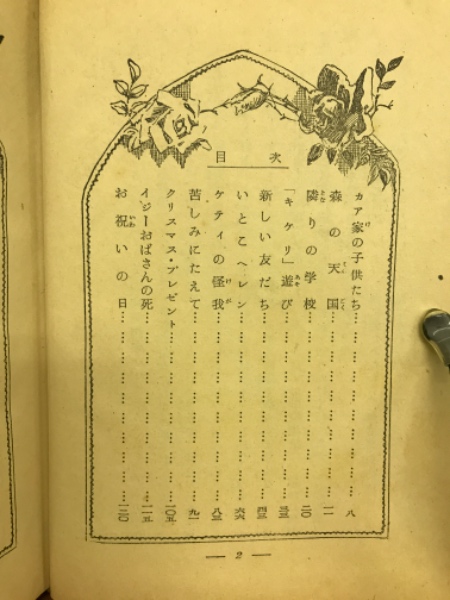 目次
カア家の子供たち……………………八
森の天国……………………一一
隣りの学校……………………二〇
「キケリ」遊び……………………三三
新しい友だち……………………四三
いとこヘレン……………………六六
ケティの怪我……………………八三
苦しみにたえて……………………九一
クリスマス・プレゼント……………………一〇五
イジーおばさんの死……………………一一五
お祝いの日……………………一二〇
— 2 —